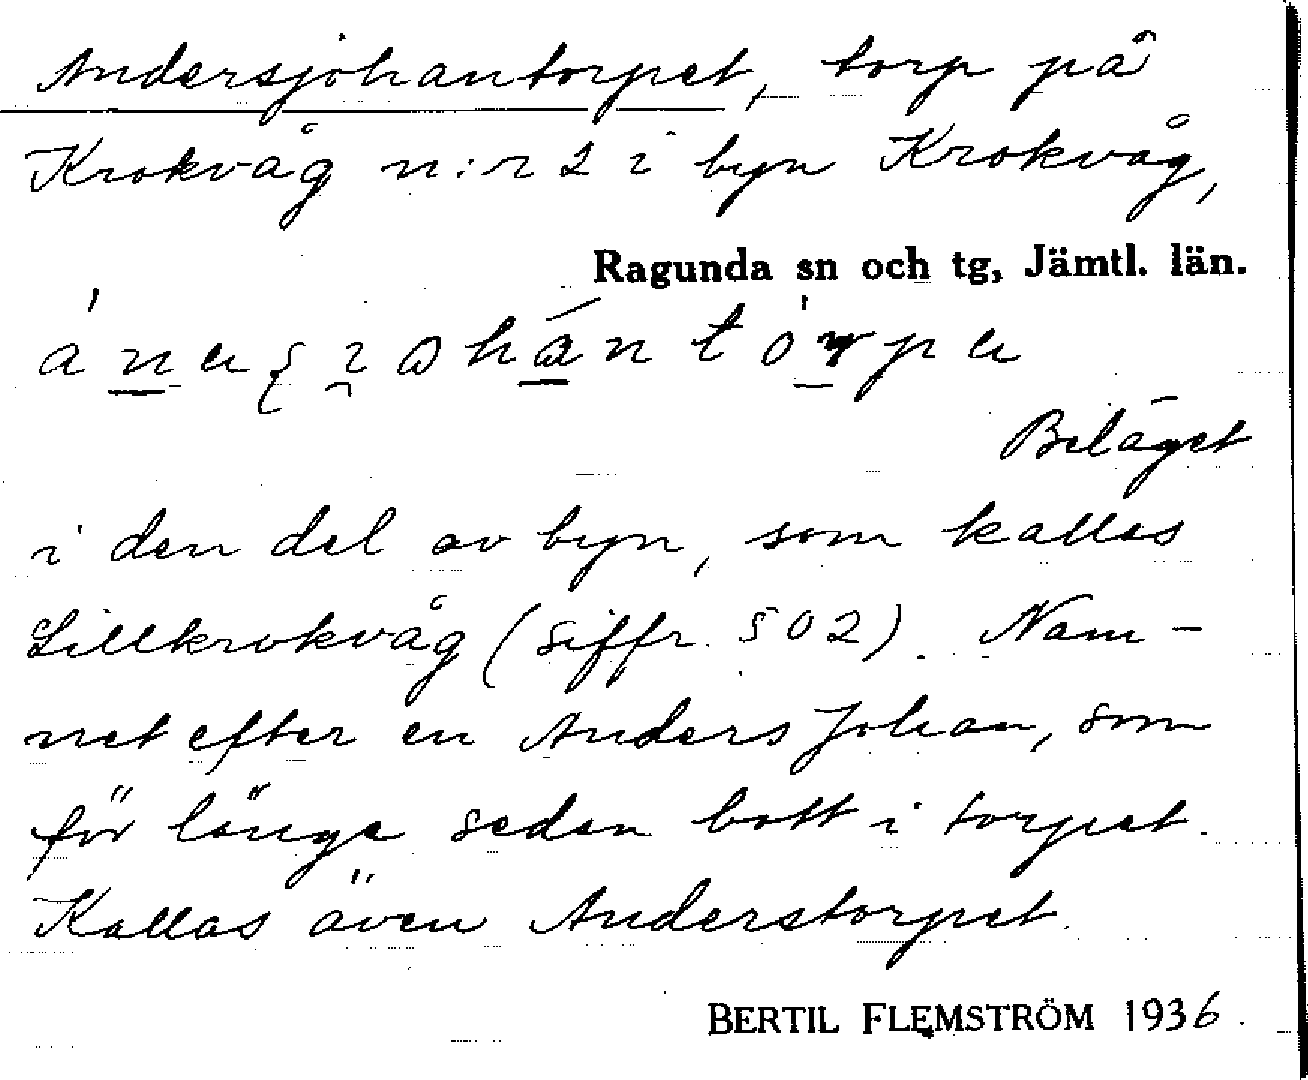 Andersjohantorpet, torp på
Krokvåg n:r 2 i byn Krokvåg,
Ragunda sn och tg, Jämtl. län.
Beläget
i den del av byn, som kallas
Lillkrokvåg (siffr. 502). Nam-
net efter en Anders Johan, som
för länge sedan bott i torpet.
Kallas även Anderstorpet.
BERTIL FLEMSTRÖM 1936.